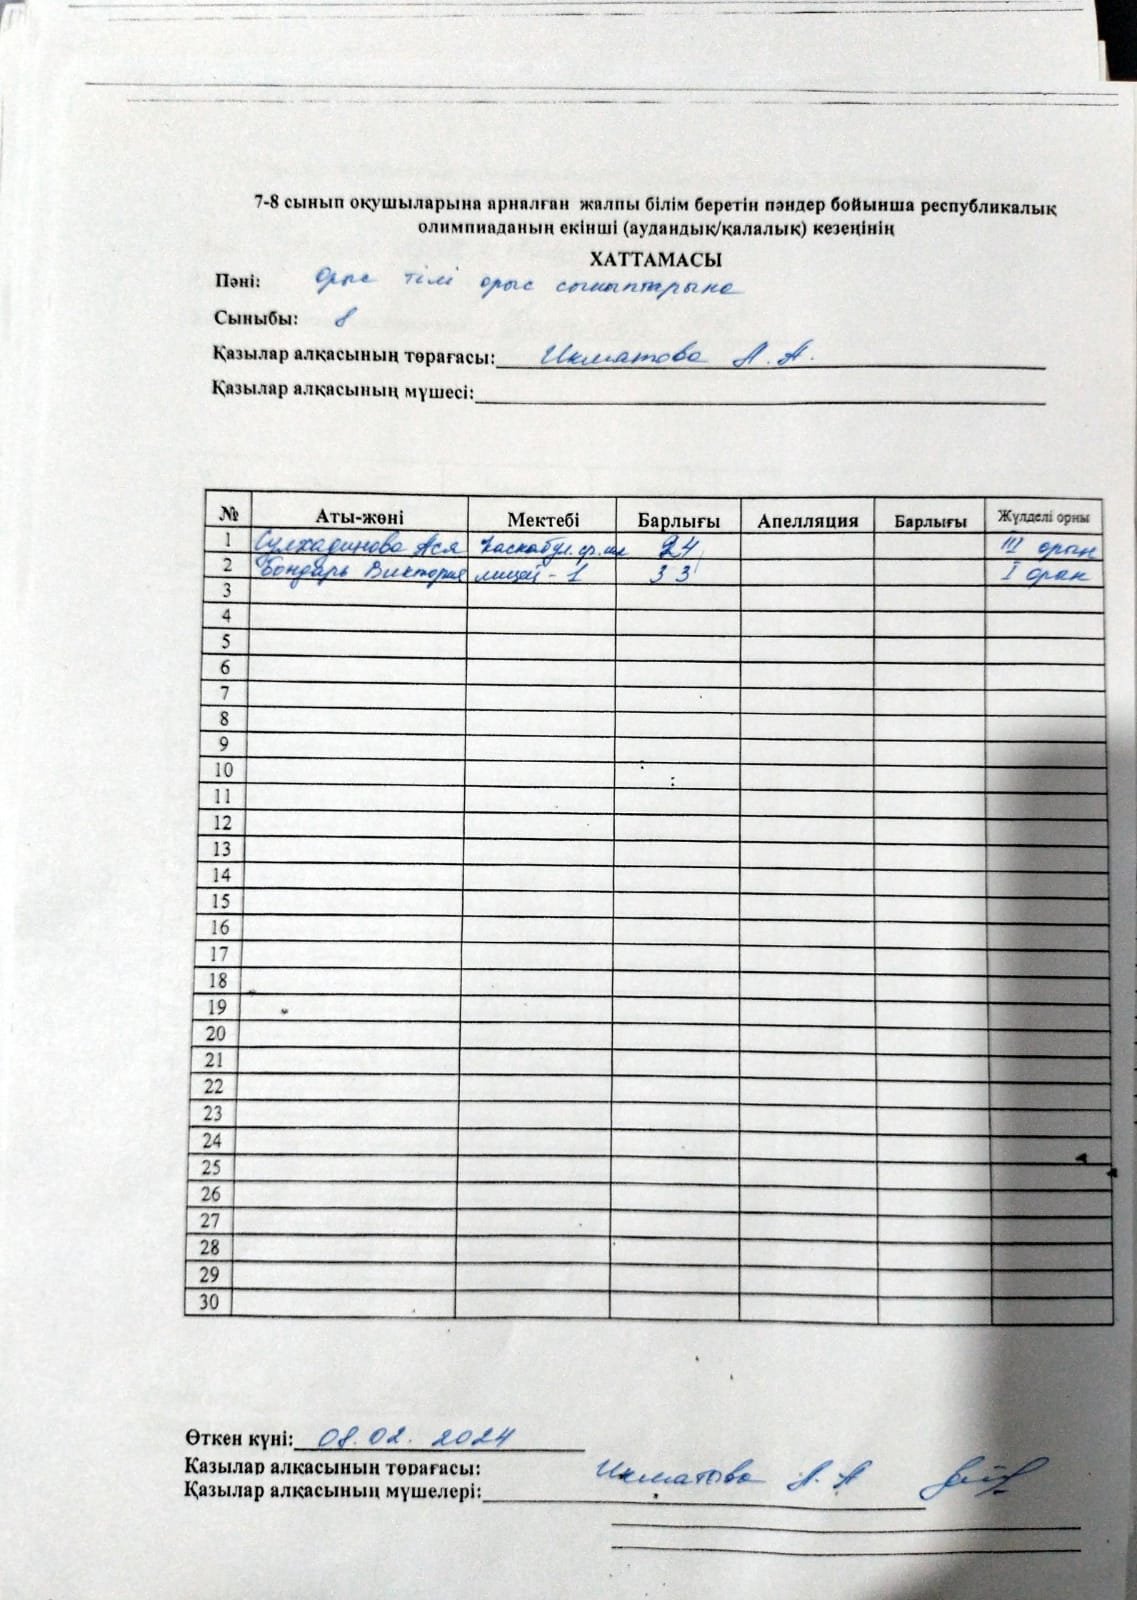 7-8 сынып оқушыларына арналған жалпы білім беретін пәндер бойынша республикалық
олимпиаданың екінші (аудандық/қалалық) кезеңінің
ХАТТАМАСЫ
Пәні: орыс тілі орыс сыныптарына
Сыныбы: 8
Қазылар алқасының төрағасы: Икматова А. А.
Қазылар алқасының мүшесі:
№ Аты-жөні Мектебі Барлығы Апелляция Барлығы Жүлделі орны
1 Сулхадинова Ася 24 III орын
2 Бондарь Виктория лицей - 1 33 I орын
3
4
5
6
7
8
9
10
11
12
13
14
15
16
17
18
19
20
21
22
23
24
25
26
27
28
29
30
Өткен күні: 08.02. 2024
Қазылар алқасының төрағасы: Икматова А. А
Қазылар алқасының мүшелері: